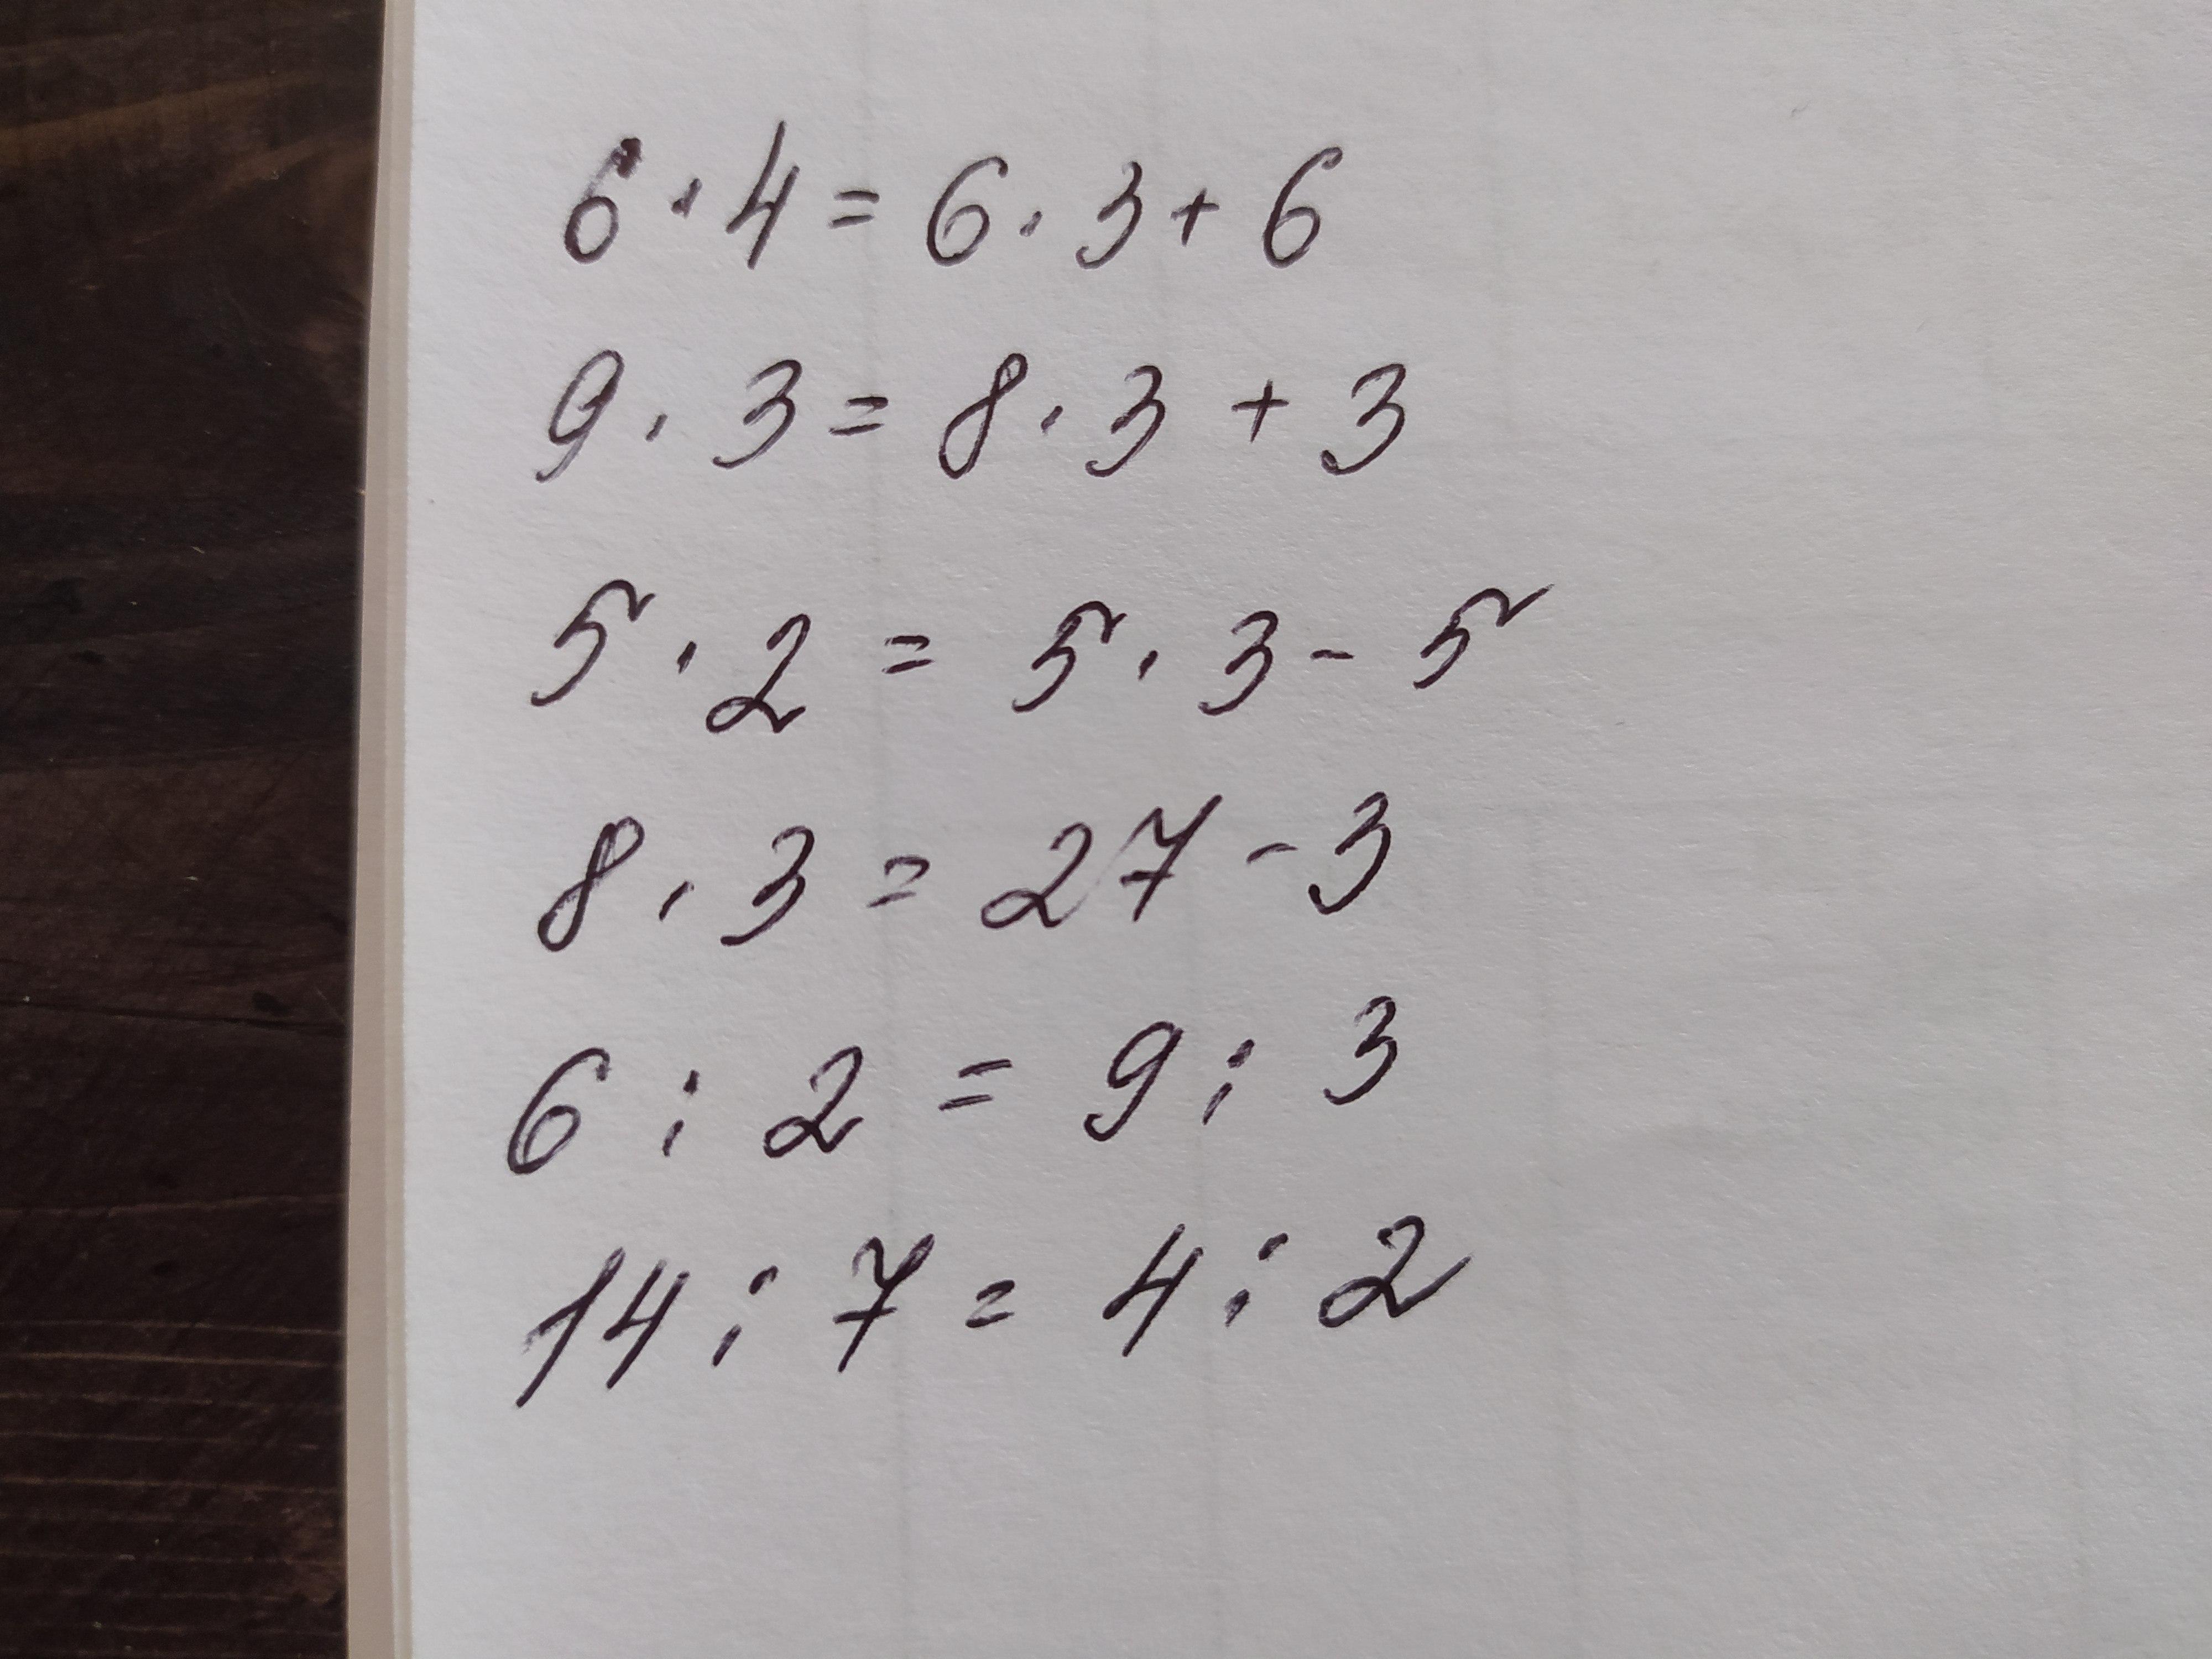 6 · 4 = 6 · 3 + 6
9 · 3 = 8 · 3 + 3
5 · 2 = 5 · 3 - 5
8 · 3 = 27 - 3
6 : 2 = 9 : 3
14 : 7 = 4 : 2